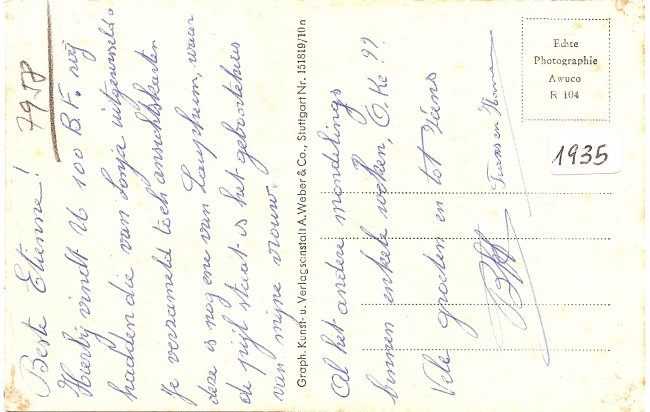 Beste Etienne!
Hierbij vindt U 100 B.F. wij
hadden die van Sonja uitgewisseld.
Je verzameld toch ansichtskaarten
deze is nog ene van Laupheim, waar
de pijl staat is het geboortehuis
van mijne vrouw.
7958
Graph. Kunst- u. Verlagsanstalt A. Weber & Co., Stuttgart Nr. 151819/10 n
Al het andere mondelings
binnen enkele weken, O.Ke??
Vele groeten en tot ziens
Echte
Photographie
Awuco
R 104
1935